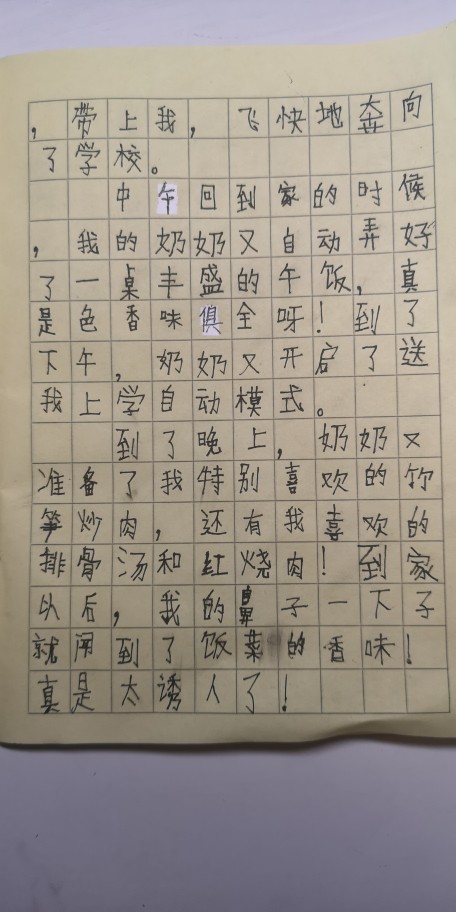 ，带上我，飞快地奔向
了学校。
中午回到家的时候
，我的奶奶又自动弄好
了一桌丰盛的午饭，真
是色香味俱全呀！到了
下午，奶奶又开启了送
我上学自动模式。
到了晚上，奶奶又
准备了我特别喜欢的竹
笋炒肉，还有我喜欢的
排骨汤和红烧肉！到家
以后，我的鼻子一下子
就闻到了饭菜的香味！
真是太诱人了！